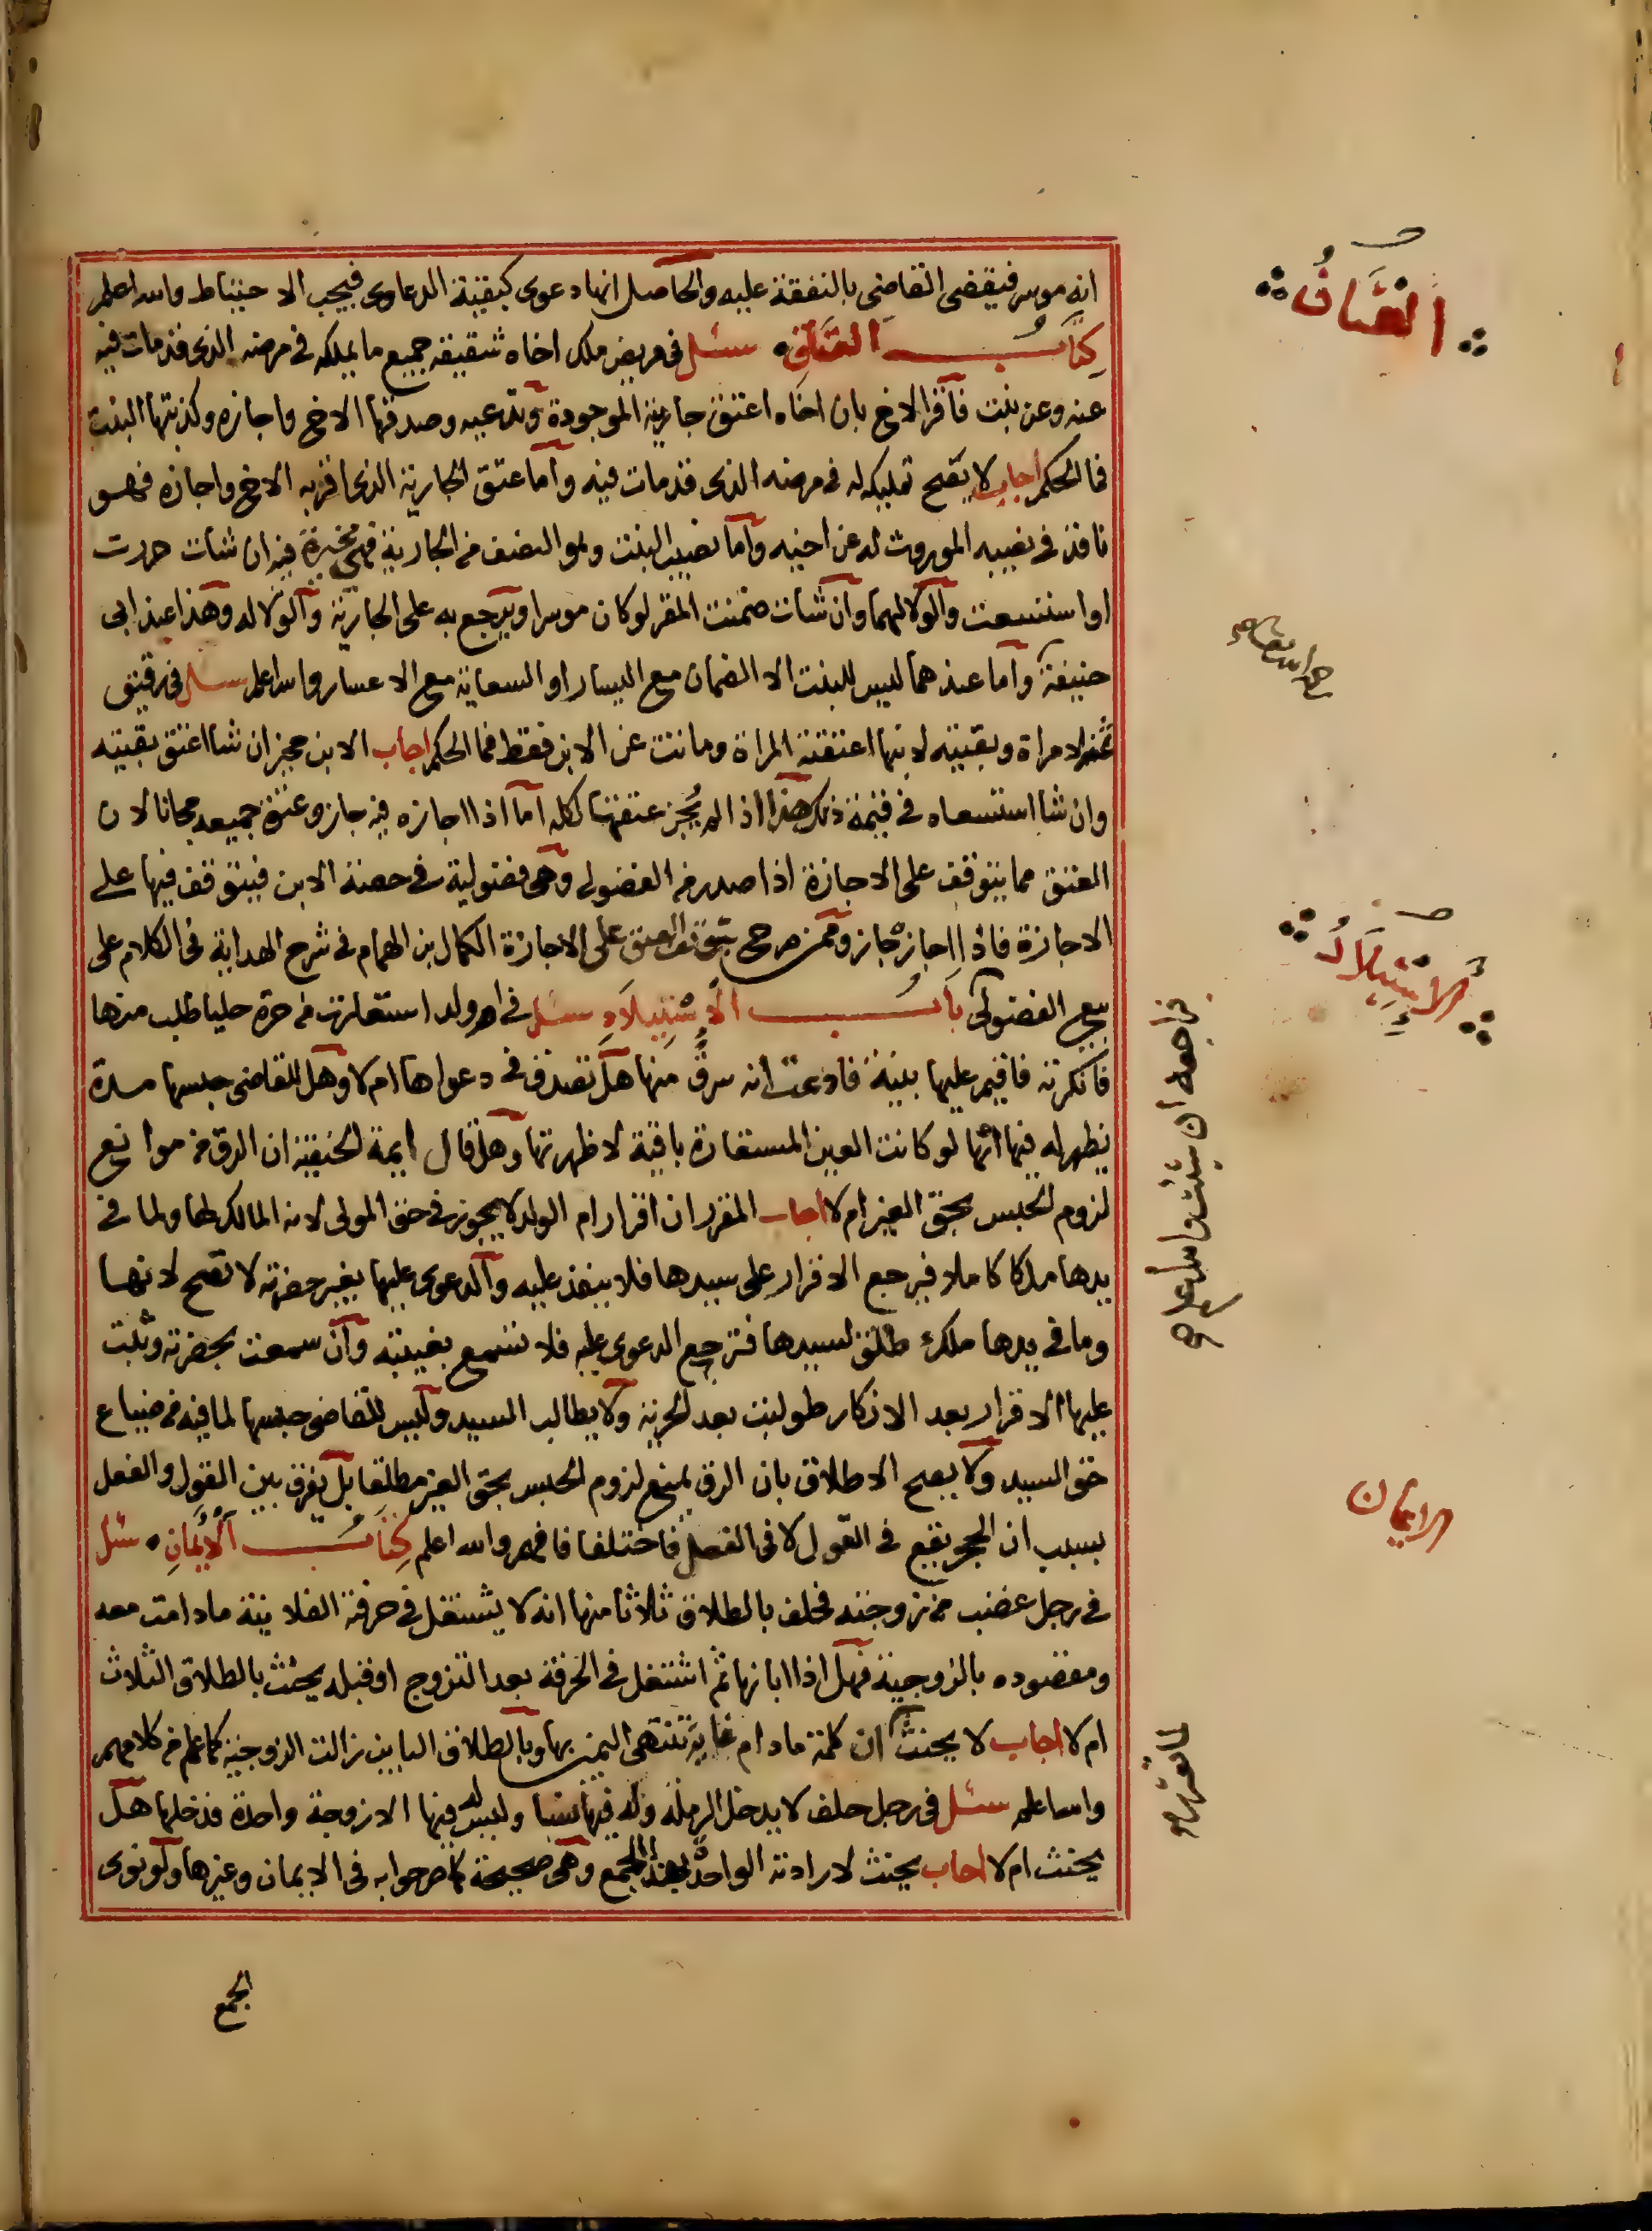 العتاق
انه موسر فيقضى القاضى بالنفقة عليه والحاصل انها دعوى كبقية الدعاوى فيجب الاحتياط والله اعلم
كتاب العتاق سئل فى مريض ملك اخاه شقيقه جميع ما يملكه فى مرضه الذى قد مات فيه
عنه وعن بنت فاقر الاخ بان اخاه اعتق جاريته الموجودة وصدقها الاخ واجازه وكذبتها البنت
فما الحكم اجاب لا يصح تمليكه له فى مرضه الذى قد مات فيه واما عتق الجارية الذى اقر به الاخ واجازه فهو
نافذ فى نصيبه الموروث له عن اخيه واما نصيب البنت وهو النصف من الجارية فهى مخيرة فيه ان شات حررت
او استسعت والولا لهما وان شات ضمنت المقر لو كان موسرا ويرجع به على الجارية والولا له وهذا عند ابى
حنيفة واما عندهما ليس للبنت الا الضمان مع اليسار او السعاية مع الاعسار والله اعلم سئل فى رقيق
ثمنه لامراة وبقيته لابنها اعتقته المراة وماتت عن الابن فقط فما الحكم اجاب الابن مخير ان شا اعتق بقيته
وان شا استسعاه فى قيمة ذلك هذا اذا لم يجز عتقها لكله اما اذا اجازه فيه جاز وعتق جميعه مجانا لان
العتق مما يتوقف على الاجازة اذا صدر من الفضولى وهى فضولية فى حصة الابن فيتوقف فيها على
الاجازة فاذا اجازه جاز وممن صرح بتوقف العتق على الاجازة الكمال بن الهمام فى شرح الهداية فى الكلام على
بيع الفضولى باب الاستيلاد سئل فى ام ولد استعارت من حرة حليا طلب منها
فراجعه ان شئت والله اعلم صح
الاستيلاد
فانكرته فاقيم عليها بينة فادعت انه سرق منها هل تصدق فى دعواها ام لا وهل للقاضى حبسها مدة
يظهر له فيها انها لو كانت العين المستعارة باقية لاظهرتها وهل قال ايمة الحنفية ان الرق من موانع
لزوم الحبس بحق الغير ام لا اجاب المقرر ان اقرار ام الولد لا يجوز فى حق المولى لانه المالك لها ولما فى
يدها ملكا كاملا فيرجع الاقرار على سيدها فلا ينفذ عليه والدعوى عليها بغير حضرته لا تصح لانها
وما فى يدها ملك طلق لسيدها فترجع الدعوى عليه فلا تسمع بغيبته وان سمعت بحضرته وثبت
عليها الاقرار بعد الانكار طولبت بعد الحرية ولا يطالب السيد وليس للقاضى حبسها لما فيه من ضياع
حق السيد ولا يصح الاطلاق بان الرق يمنع لزوم الحبس بحق الغير مطلقا بل يفرق بين القول والفعل
بسبب ان الحجر يقع فى القول لا فى الفعل فاختلفا فافهم والله اعلم كتاب الايمان سئل
الايمان
فى رجل غضب من زوجته فحلف بالطلاق ثلاثا منها انه لا يشتغل فى حرفة الفلانية مادامت معه
ومقصوده بالزوجية فهل اذا ابانها ثم اشتغل فى الحرفة بعد التزوج او قبله يحنث بالطلاق الثلاث
ام لا اجاب لا يحنث ان كلمة مادام غاية تنتهى اليمين بها وبالطلاق الباين زالت الزوجية كما علم من كلامهم
والله اعلم سئل فى رجل حلف لا يدخل الرملة وله فيها نسا وليس له فيها الا زوجة واحدة فدخلها هل
يحنث ام لا اجاب يحنث لارادته الواحدة بهذا الجمع وهى صحيحة كما صرحوا به فى الايمان وغيرها ولو نوى
الجمع